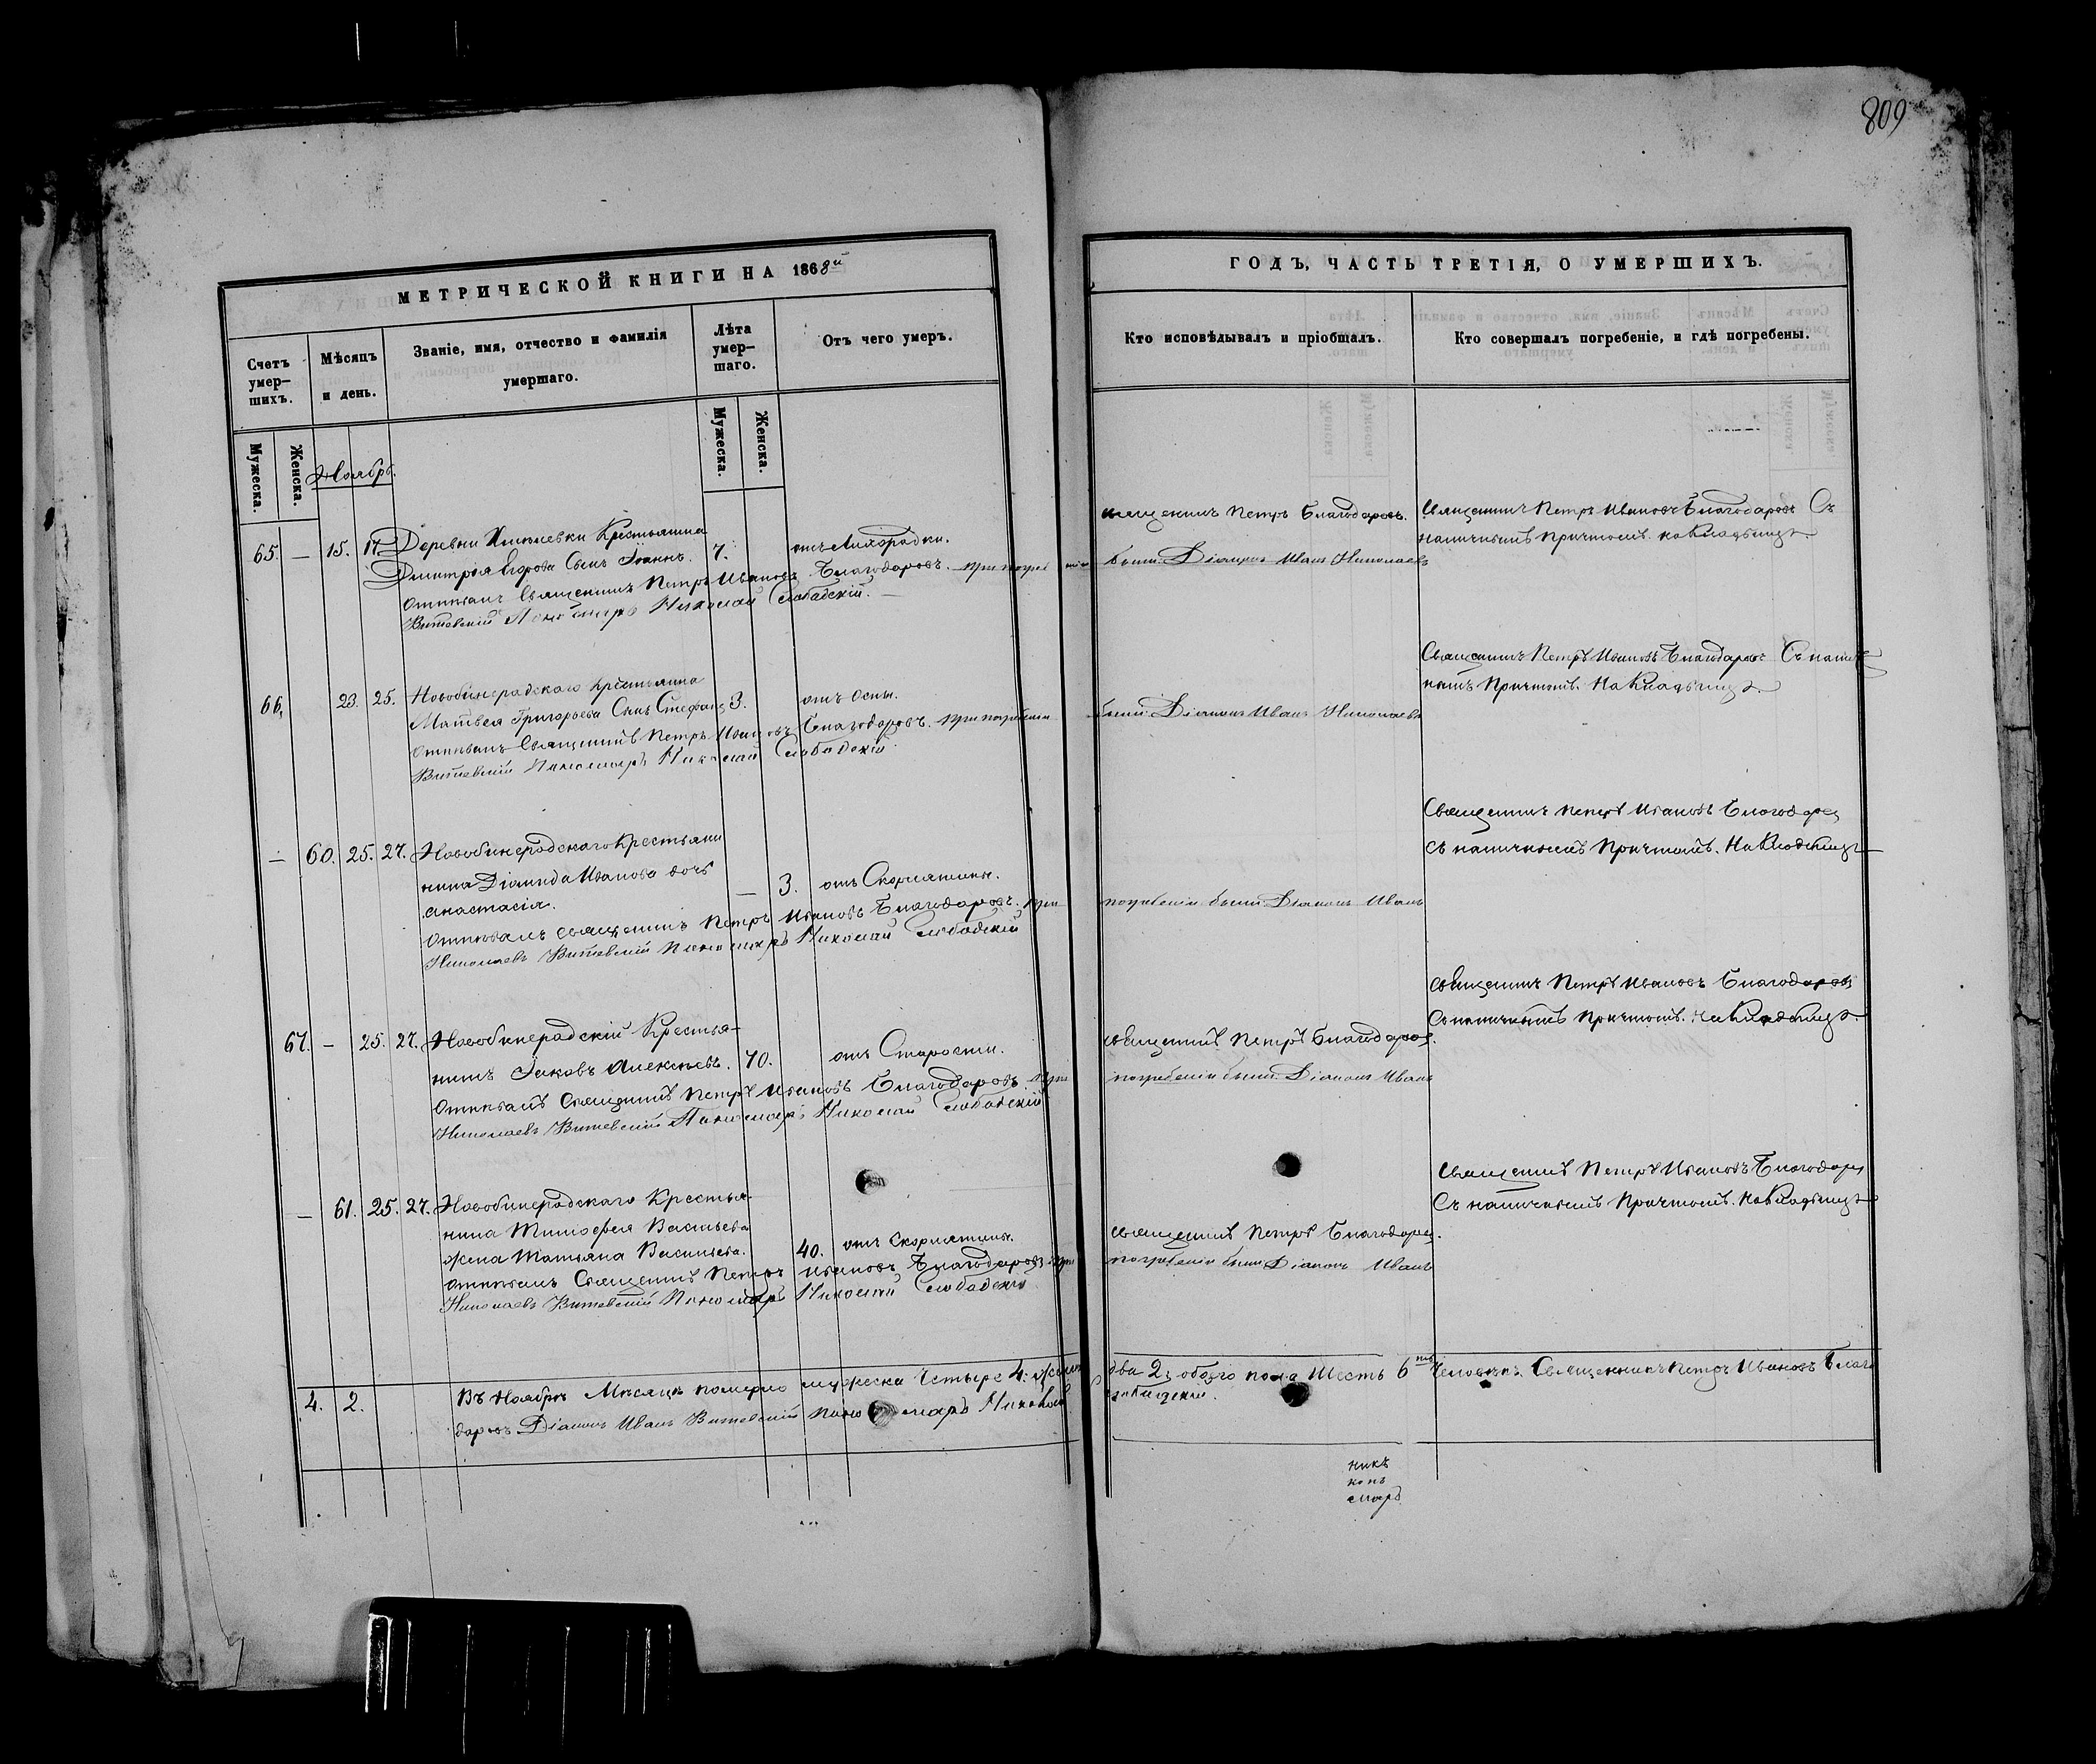 809
МЕТРИЧЕСКОЙ КНИГИ НА 1868й
ГОДЪ, ЧАСТЬ ТРЕТІЯ, О УМЕРШИХЪ.
Счетъ умер-шихъ.
Мѣсяцъ и день.
Званіе, имя, отчество и фамилія умершаго.
Лѣта умер-шаго.
Отъ чего умеръ.
Кто исповѣдывалъ и пріобщалъ.
Кто совершалъ погребеніе, и гдѣ погребены.
Мужеска. Женска.
Ноябрь.
Мужеска. Женска.
65. — 15. 17. Деревни Крестьянина
Дмитрія Егорова Сынъ Іоаннъ. 7. отъ Лихорадки.
Священникъ Петръ Благодаровъ.
Священникъ Петръ Ивановъ Благодаровъ Съ
наличнымъ причтомъ. на Кладбищѣ.
Отпѣвалъ Священникъ Петръ Ивановъ Благодаровъ. при погребеніи были: Діаконъ Иванъ Николаевъ
Витевскій Пономарь Николай Слободскій. —
66. 23. 25. Новобинарадскаго крестьянина
Матвея Григорьева Сынъ Стефанъ 3. отъ Оспы.
Священникъ Петръ Ивановъ Благодаровъ Съ налич-
нымъ Причтомъ. На Кладбищѣ.
Отпѣвалъ Священникъ Петръ Ивановъ Благодаровъ. при погребеніи были: Діаконъ Иванъ Николаевъ
Витевскій Пономарь Николай Слободскій
— 60. 25. 27. Новобинарадскаго Крестьяни
нина Иванова дочь
Анастасія. — 3. отъ Скорлатины.
Священникъ Петръ Ивановъ Благодаров
съ наличнымъ Причтомъ. На Кладбищѣ
Отпѣвалъ священникъ Петръ Ивановъ Благодаровъ. при погребеніи были: Діаконъ Иванъ
Николаевъ Витевскій Пономарь Николай Слободскій
67. — 25. 27. Новобинарадскій Крестья-
нинъ Іаковъ Алексѣевъ. 70. отъ Старости.
священникъ Петръ Благодаров.
священникъ Петръ Ивановъ Благодаровъ
Съ наличнымъ Причтомъ. На Кладбищѣ.
Отпѣвалъ Священникъ Петръ Ивановъ Благодаровъ. при погребеніи были: Діаконъ Иванъ
Николаевъ Витевскій Пономарь Николай Слободскій
— 61. 25. 27. Новобинарадскаго Крестья-
нина Тимофея Васильева
жена Татьяна Васильева. 40. отъ Скорлатины.
священникъ Петръ Благодаров.
Священникъ Петръ Ивановъ Благодаров
Съ наличнымъ Причтомъ. На Кладбищѣ
отпѣвалъ Священникъ Петръ Ивановъ Благодаровъ при погребеніи были: Діаконъ Иванъ
Николаевъ Витевскій Пономарь Николай Слободскій
4. 2. Въ Ноябрѣ Мѣсяцѣ померло мужеска Четыре 4: женска два 2; обоего пола Шесть 6ть Человѣкъ. Священникъ Петръ Ивановъ Благо
даровъ Діаконъ Иванъ Витевскій пономарь Николай
никъ
конъ
марь